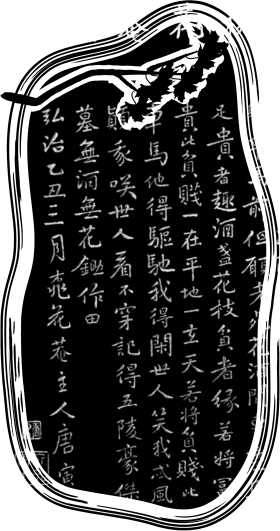 前但願老花酒間
足貴者趣酒盞花枝貧者緣若將富
貴比貧賤一在平地一在天若將貧賤比
車馬他得驅馳我得閑世人笑我忒風
顛我咲世人看不穿記得五陵豪傑
墓無酒無花鋤作田
弘治乙丑三月桃花菴主人唐寅